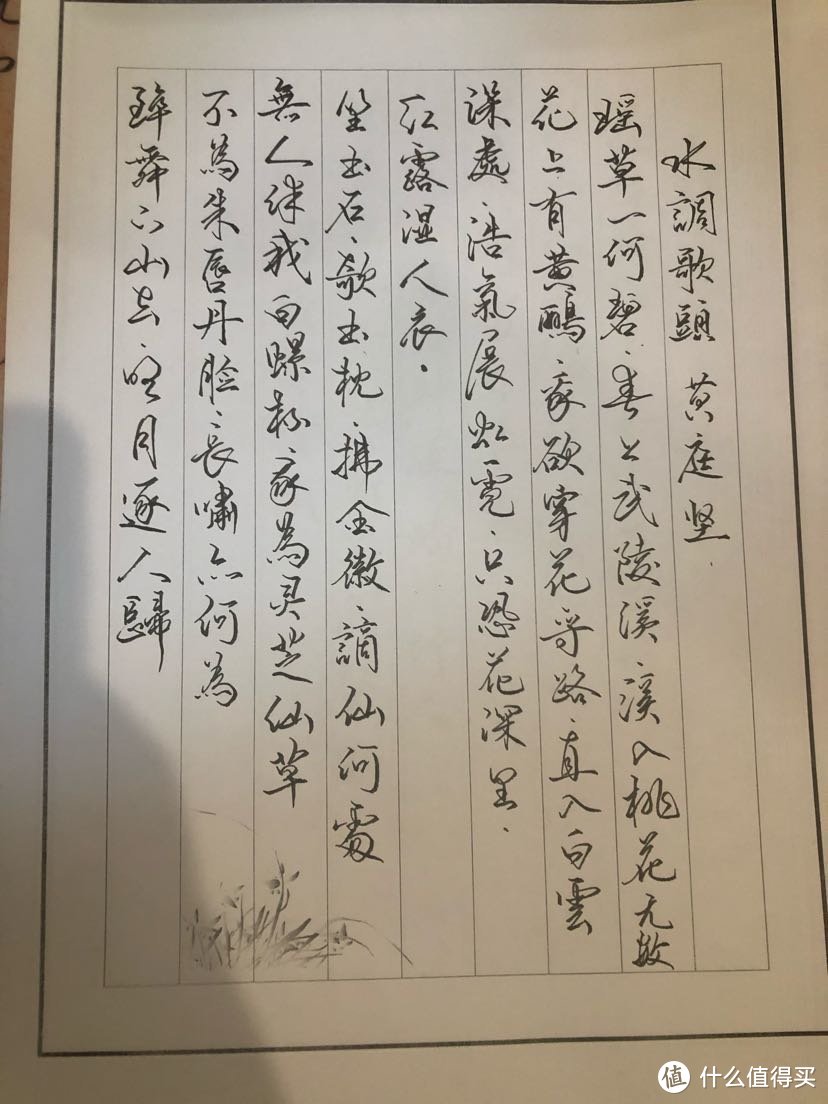 水調歌頭 黄庭坚.
瑶草一何碧.春上武陵溪.溪入桃花无數
花上有黄鸝.我欲穿花寻路.直入白雲
深處.浩氣展虹霓.只恐花深里.
红露湿人衣.
坐玉石.欹玉枕.拂金徽.謫仙何處
無人伴我白螺杯.我為灵芝仙草
不為朱唇丹脸.長嘯亦何為
醉舞下山去.明月逐人歸
值 什么值得买